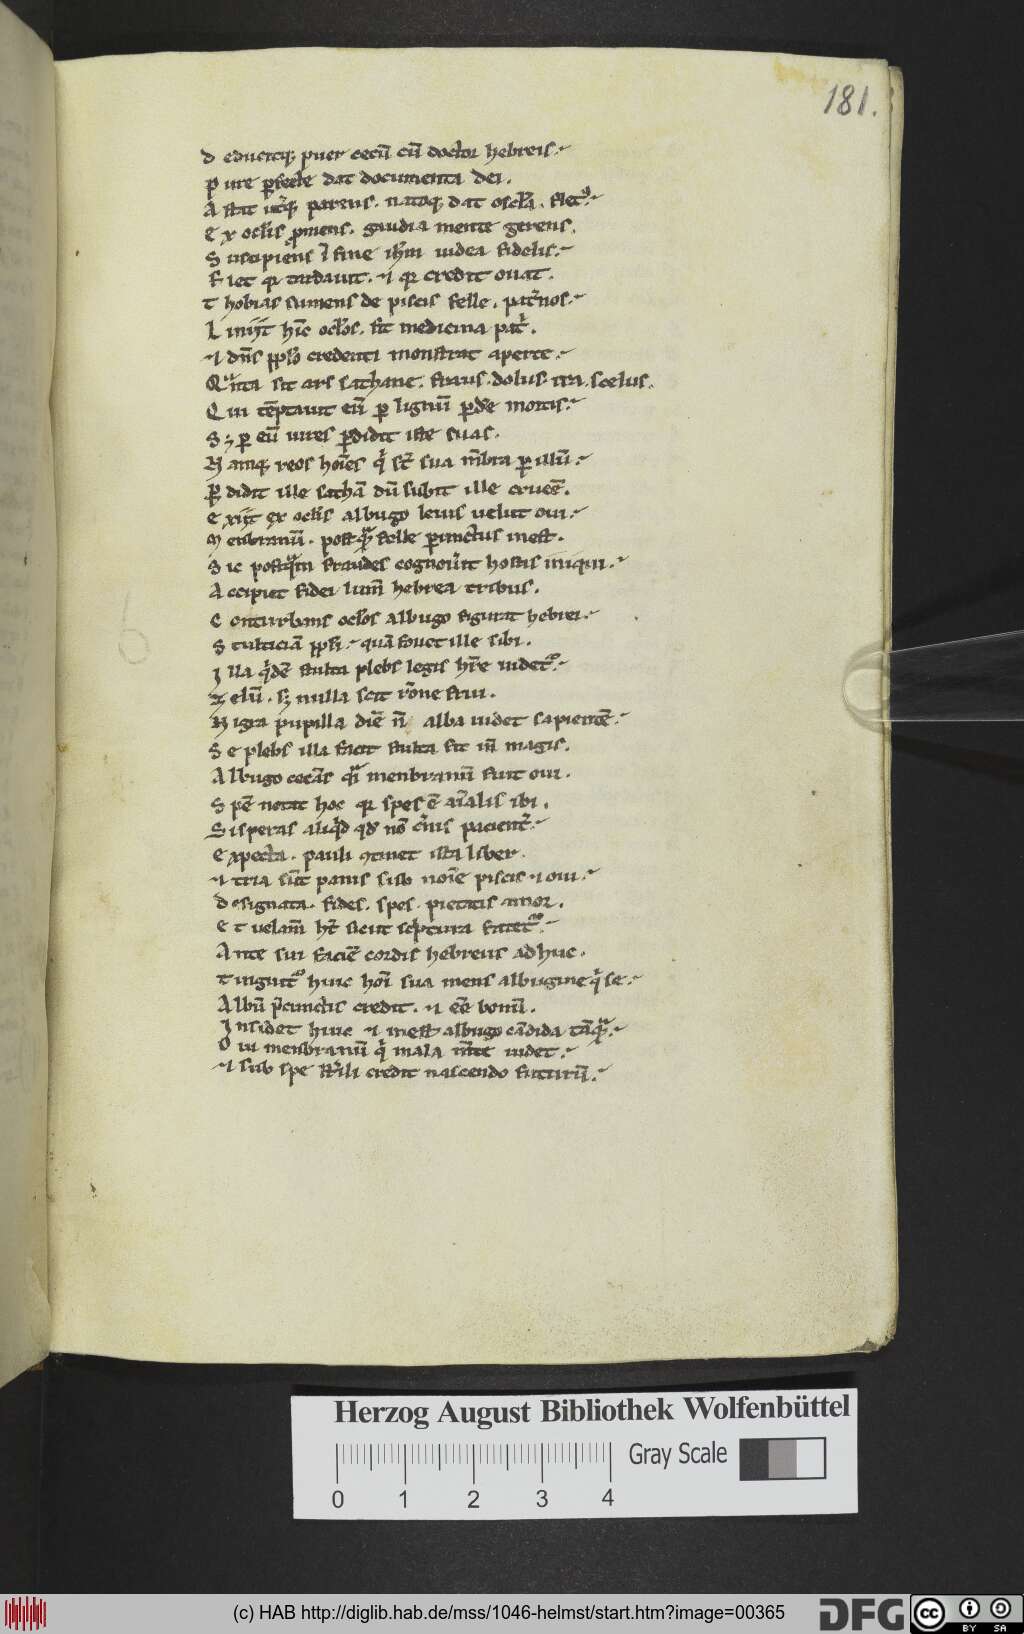 181.
D educitq; puer cecū cū doctor hebreis.
P ure p̄fecte dat documenta dei.
A stat utq; parens. natoq; dat oscl̄a. flet;
E x oclīs p̄mens. gaudia mente gerens.
S uscipiens ī fine ih̄m iudea fidelis.
F let qr tardauit. ⁊ qr credit ouat.
T hobias sumens de piscis felle. pat̄nos.
L iniit hīc oclōs. fit medicina pat̄.
⁊ dn̄s pplō credenti monstrat aperte.
Qᵃnta sit ars sathane. fraus. dolus. ira. scelus.
Q ui tēptauit eū p lignū pdē mortis.
S ꝫ p eū uires pdidit iste suas.
N amq; reos hoīes q̄ st̄ sua m̄bra p illū.
P didit ille sathā dū subit ille crucē.
E xiit ex oclīs albugo leuis uelut oui.
M enbranū. postqᵃ felle punctus inest.
S ic postqᵃm fraudes cognouit hostis iniqui.
A ccipiet fidei lum̄ hebrea tribus.
C onturbans oclōs albugo figurat hebrei.
S tulticiā pplī. quā fouet ille sibi.
I lla q̄dē stulta plebs legis hr̄e uidet᷑.
Z elū. sꝫ nulla scit rōne frui.
N igra pupilla diē n̄ alba uidet sapientē.
S e plebs illa facit stulta sit in̄ magis.
A lbugo cecās qᵃ menbranū fuit oui.
S pē notat hoc qr spes ē aīalis ibi.
S i speras aliqd qd nō c̄nis pacient̄.
E xpecta. pauli ꝯtinet ista liber.
⁊ tria sūt panis sub noīe piscis ⁊ oui.
D esignata. fides. spes. pietatis amor.
E t uelam̄ ht̄ sicut sc̄ptura fatet᷑.
A nte sui faciē cordis hebreus adhuc.
T inguit᷑ huic hoī sua mens albugine q̄ se.
A lbū p̄cunctis credit. ⁊ eē bonū.
I nsidet huic ⁊ inest albugo cādida tāqᵃ.
O ui menbranū q̄ mala m̄te uidet.
⁊ sub spe st̄ili credit nascendo futurū.
Herzog August Bibliothek Wolfenbüttel
Gray Scale
0 1 2 3 4
(c) HAB http://diglib.hab.de/mss/1046-helmst/start.htm?image=00365
DFG
cc BY SA